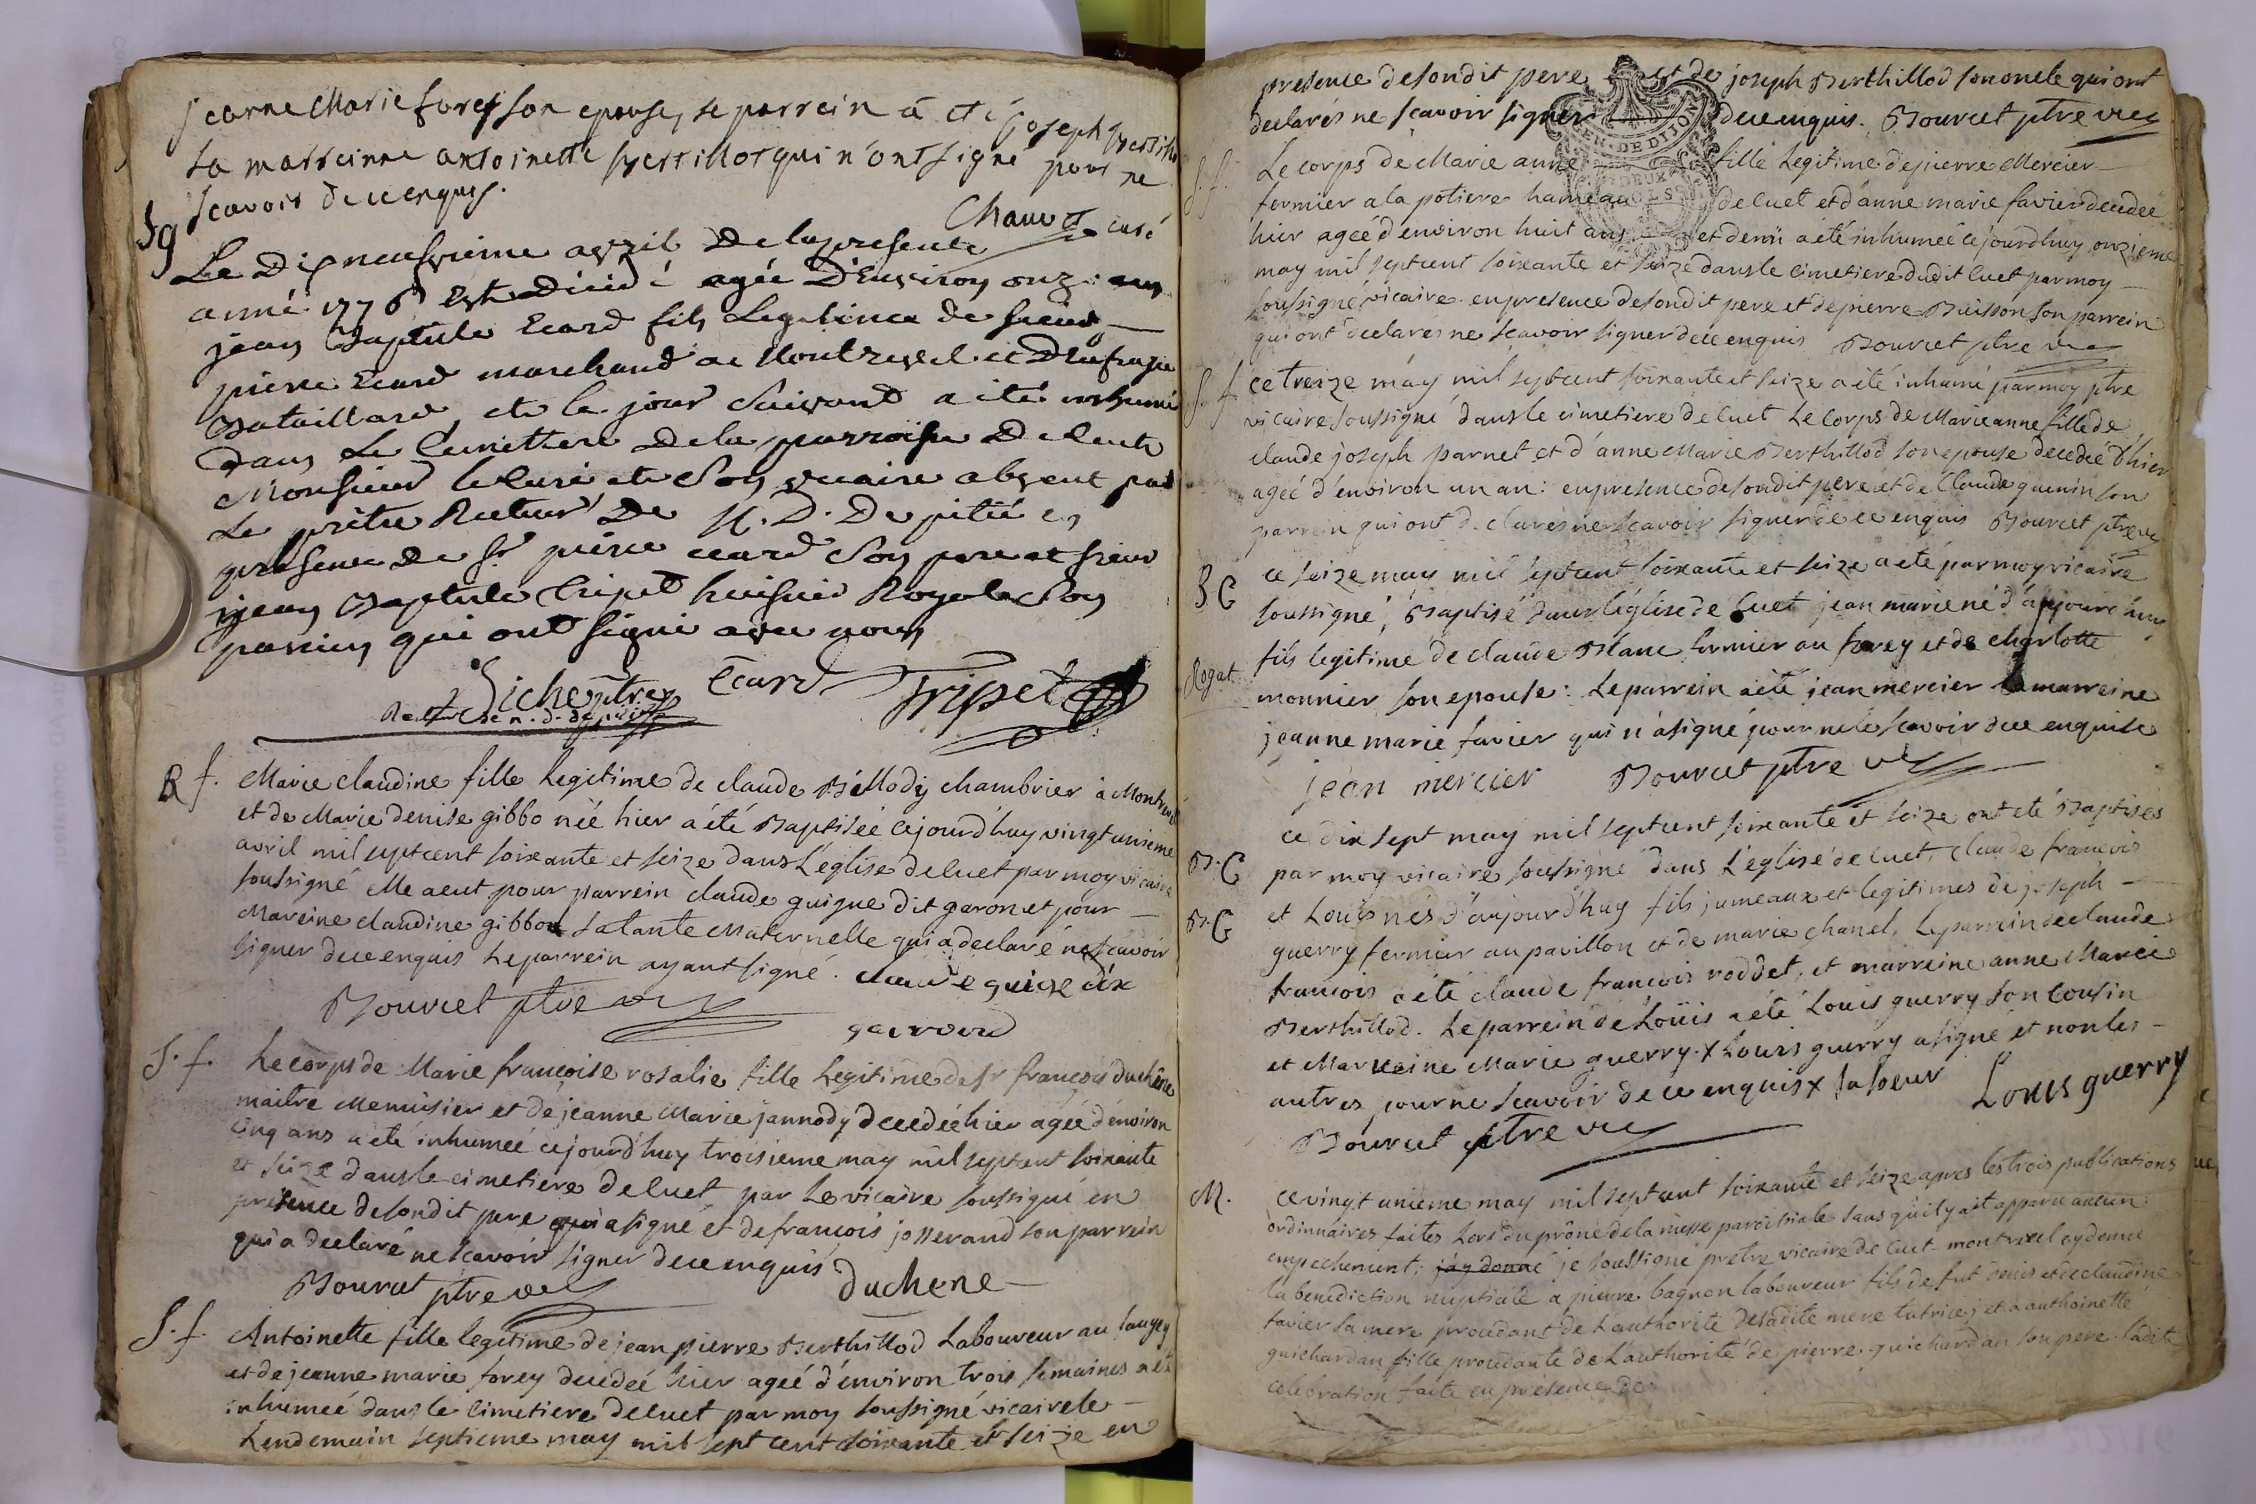 jeanne Marie forey son epouse, le parrein a eté joseph Berthil
la marreinne antoinette Bertillot qui n'ont signé pour ne
scavoir de ce enquis.
Chanvet curé
Sg
Le Dixneufvieme avril De la presente
anné 1776 Est Décidé agée D'Environ onze ans
jean Baptiste Ecard fils Legitime de sieur
pierre Ecard marchand a Montrevel et D'Eufrasie
Bataillard, et le jour suivant a ité inhumé
dans Le Cimettiere De la parroisse De Cuet
Monsieur le Curé et Son vicaire absent par
Le prêtre Recteur De N. D. De pitié en
presence De Sr pierre ecard Son pere et sieur
jean Baptiste Tripet huissier Royale Son
parrein qui ont signé avec nous
Piche ptre Ecard Tripet
Recteur de n. d. de pitié
B f. Marie claudine fille Legitime de claude Billody chambrier à Montrevel
et de Marie denise gibbo née hier a été Baptisée cejourd'huy vingt unieme
avril mil sept cent soixante et seize dans L'eglise de Cuet par moy vicaire
soussigné elle a eut pour parrein claude guigue dit garon et pour
Mareine claudine gibbot sa tante Maternelle qui a declaré ne scavoir
signer de ce enquis Le parrein ayant signé. claude guigue dix
Bourcet ptre vic garron
S. f. Le corps de Marie françoise rosalie fille Legitime de sr françois duchêne
maitre Menuisier et de jeanne Marie jannody decedée hier agée d'environ
cinq ans a été inhumeé cejourd'huy troisieme may mil sept cent soixante
et seize dans le cimetiere de Cuet par Le vicaire soussigné en
presence de sondit pere qui a signé et de francois josserand son parrein
qui a declaré ne scavoir signer de ce enquis
Bourcet ptre vic duchene
S. f. Antoinette fille legitime de jean pierre Berthillod Laboureur au saugey
et de jeanne marie forey decedeé hier ageé d'environ trois semaines a eté
inhumeé dans le cimetiere de Cuet par moy soussigné vicaire le
Lendemain septieme may mil sept cent soixante et seize en
presence de sondit pere et de joseph Berthillod son oncle qui ont
declarés ne scavoir signer de ce enquis. Bourcet ptre vic
GEN. DE DIJON
DEUX
SOLS
S. f. Le corps de Marie anne fille Legitime de pierre Mercier
fermier a la potiere hameau de Cuet et d'anne marie favier decedeé
hier ageé d'environ huit ans et demi a été inhumeé cejourd'huy onzieme
may mil sept cent soixante et seize dans le cimetiere dudit Cuet par moy
soussigné vicaire en presence de sondit pere et de pierre Buisson son parrein
qui ont declarés ne scavoir signer de ce enquis Bourcet ptre vic
S. f. ce treize may mil sept cent soixante et seize a été inhumé par moy ptre
vicaire soussigné dans le cimetiere de Cuet Le Corps de Marie anne fille de
claude joseph parnet et d'anne Marie Berthillod son epouse decedeé d'hier
ageé d'environ un an: en presence de sondit pere et de Claude guenin son
parrein qui ont declarés ne scavoir signer de ce enquis Bourcet ptre vic
B G ce seize may mil sept cent soixante et seize a eté par moy vicaire
soussigné, Baptisé dans l'église de Cuet jean marie né d'aujourd'huy
fils legitime de claude Blanc fermier au forey et de charlotte
monnier son epouse: Le parrein a été jean mercier la marreine
jeanne marie favier qui n'a signé pour ne le scavoir de ce enquise
jean mercier Bourcet ptre vic
ce dix sept may mil sept cent soixante et seize ont eté Baptisés
B. G par moy vicaire soussigné dans L'eglise de Cuet, claude francois
B. G et Louis nés d'aujourd'huy fils jumeaux et legitimes de joseph
guerry fermier au pavillon et de marie chanel. Le parrein de claude
francois a été claude francois roddet, et marreine anne Marie
Berthillod. Le parrein de Loüis a été Louis guerry son Cousin
et Marreine Marie guerry. x Louis guerry a signé et non les
autres pour ne scavoir de ce enquis x sa soeur Louis guerry
Bourcet ptre vic
M. ce vingt unieme may mil sept cent soixante et seize apres les trois publications
ordinnaires faites Lors du prône de la messe paroissiale sans qu'il y ait apparu aucun
empechement; j'ay donné je soussigné pretre vicaire de Cuet - montrevel ay donné
la benediction nuptiale a pierre bagnon laboureur fils de fut denis et de claudine
favier sa mere procedant de L'authorité de sadite mere tutrice; et a anthoinette
guichardan fille procedante de L'authorité de pierre guichardan son pere. ladite
celebration faite en présence de